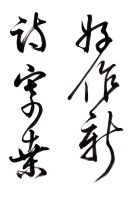 好作新
詩寄桑